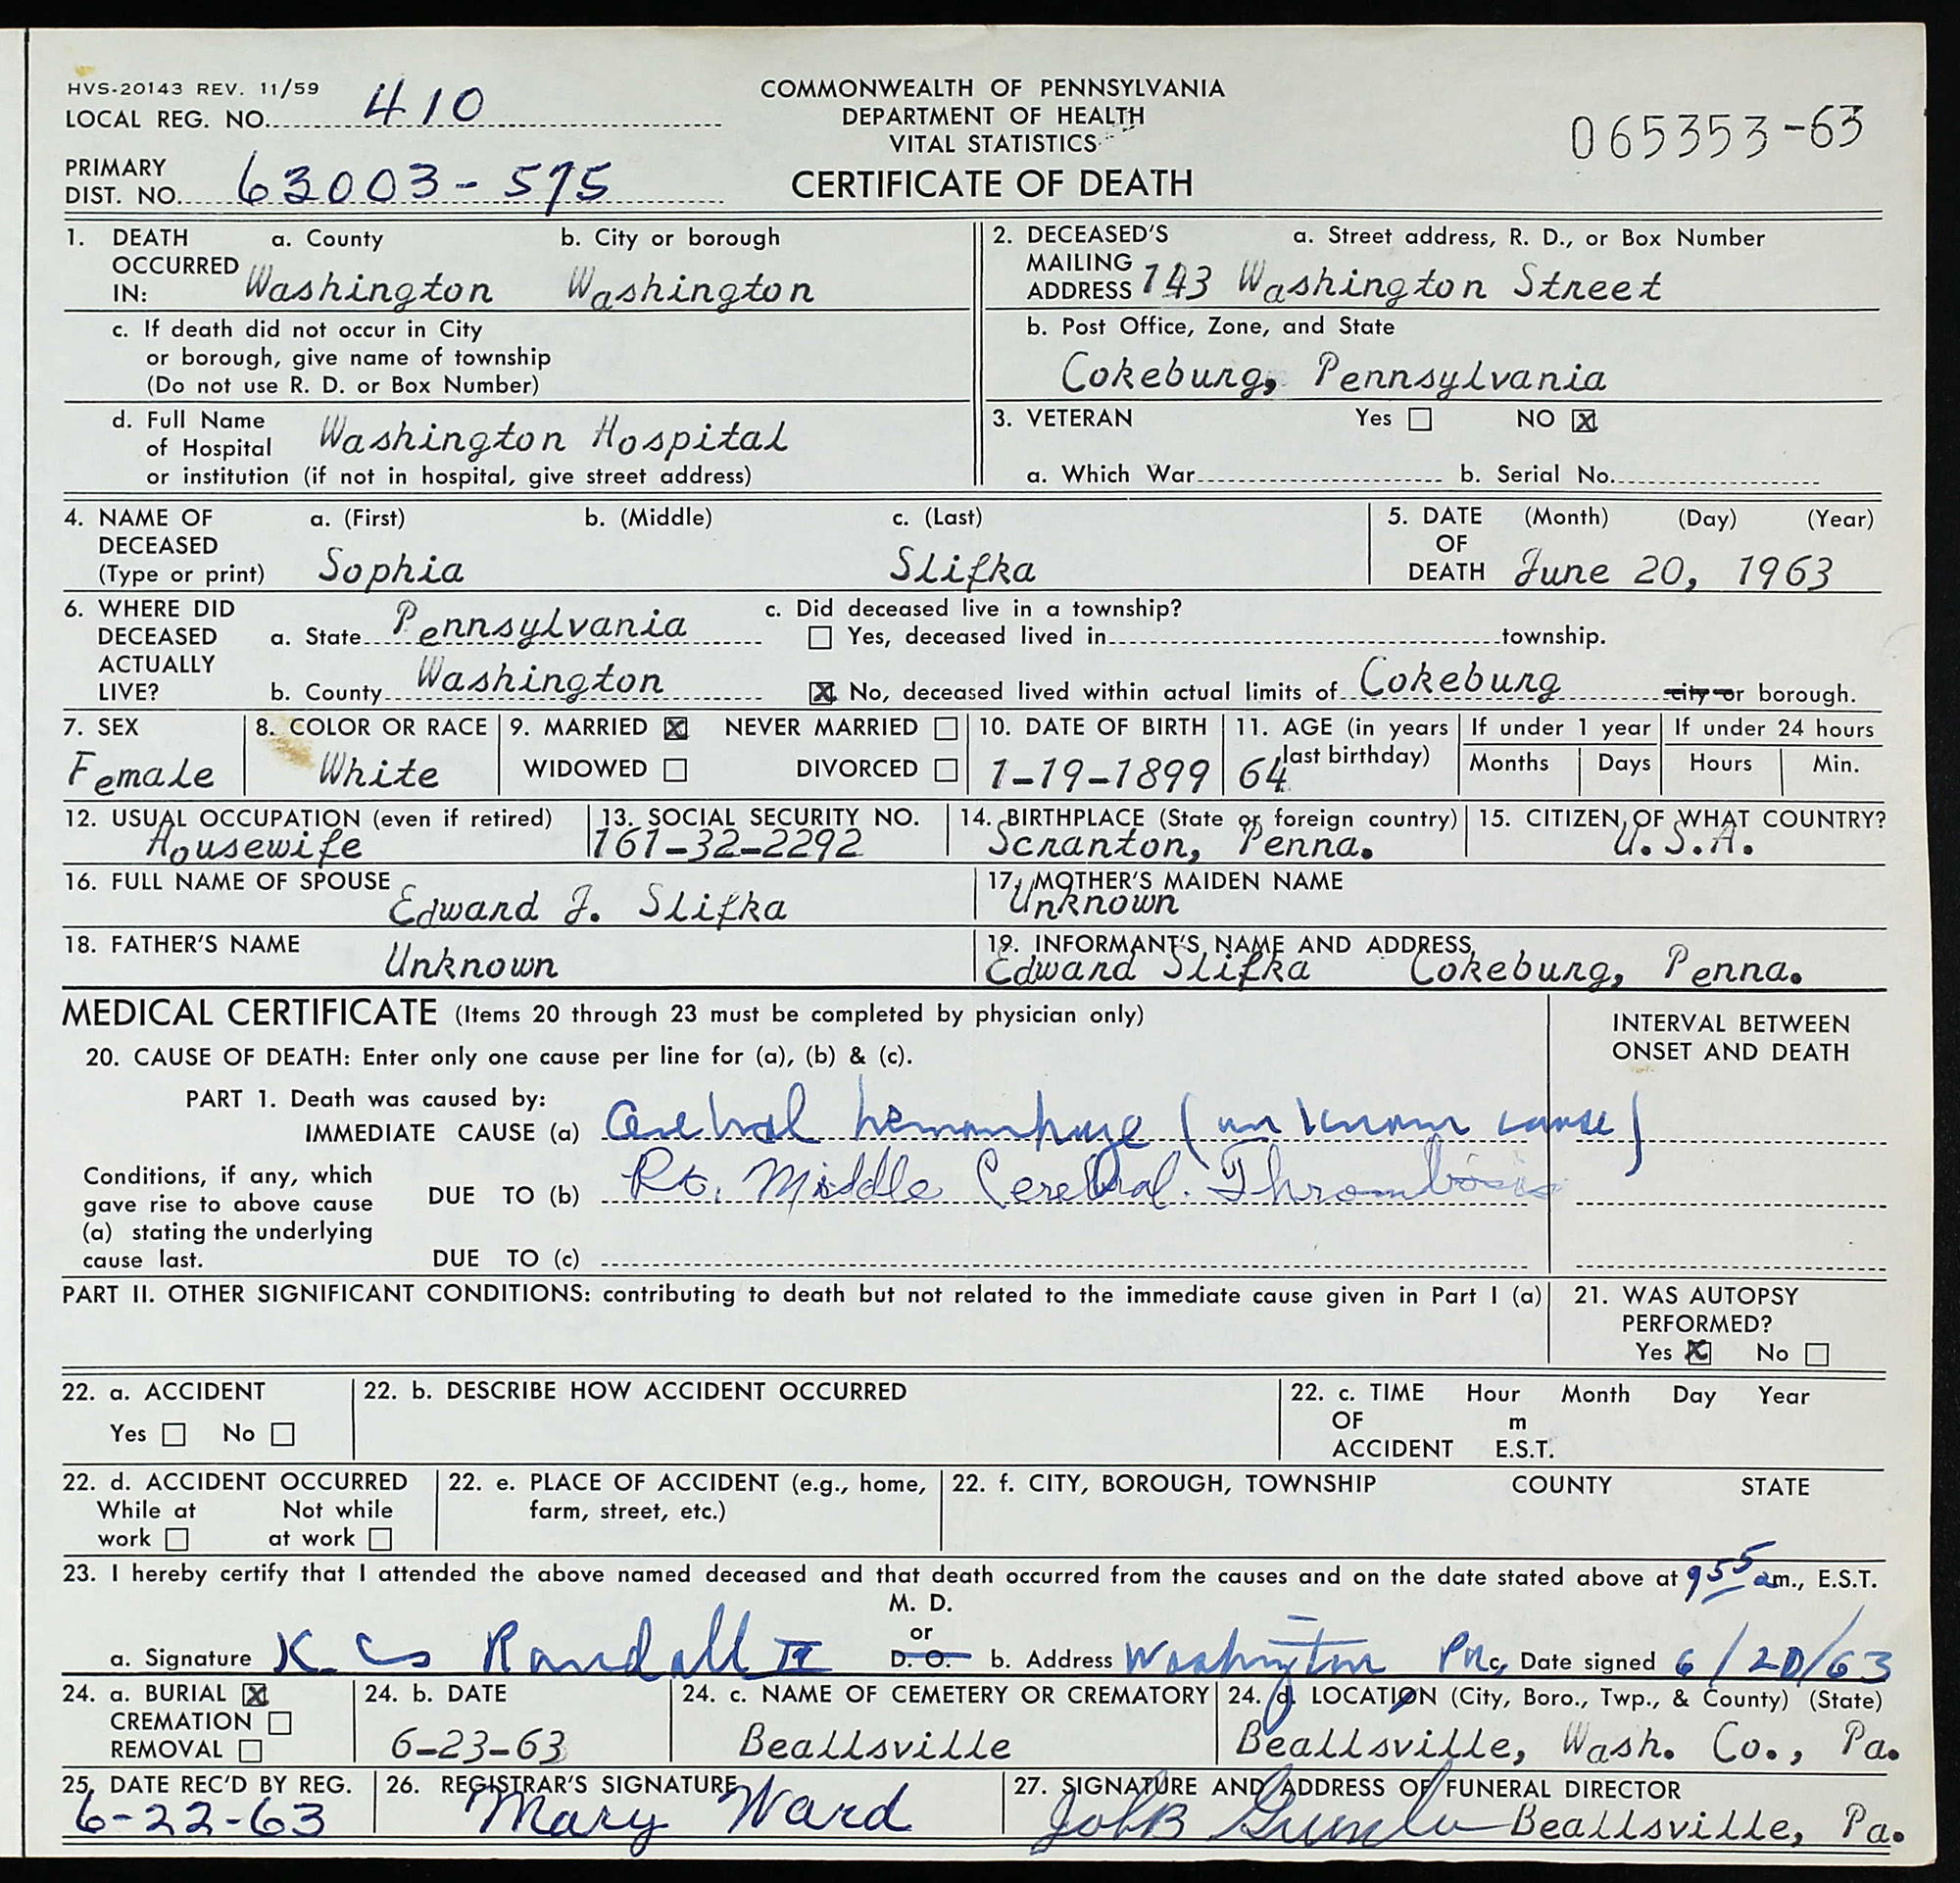 HVS-20143 REV. 11/59
LOCAL REG. NO. 410
COMMONWEALTH OF PENNSYLVANIA
DEPARTMENT OF HEALTH
VITAL STATISTICS
CERTIFICATE OF DEATH
065353-63
PRIMARY
DIST. NO. 63003-575
1. DEATH OCCURRED IN: a. County Washington b. City or borough Washington
c. If death did not occur in City
or borough, give name of township
(Do not use R. D. or Box Number)
d. Full Name
of Hospital Washington Hospital
or institution (if not in hospital, give street address)
2. DECEASED'S MAILING ADDRESS a. Street address, R. D., or Box Number
143 Washington Street
b. Post Office, Zone, and State
Cokeburg, Pennsylvania
3. VETERAN Yes ☐ NO ☒
a. Which War b. Serial No.
4. NAME OF DECEASED (Type or print) a. (First) b. (Middle) c. (Last)
Sophia Slifka
5. DATE OF DEATH (Month) (Day) (Year)
June 20, 1963
6. WHERE DID DECEASED ACTUALLY LIVE?
a. State Pennsylvania
b. County Washington
c. Did deceased live in a township?
☐ Yes, deceased lived in township.
☒ No, deceased lived within actual limits of Cokeburg city or borough.
7. SEX
Female
8. COLOR OR RACE
White
9. MARRIED ☒ NEVER MARRIED ☐
WIDOWED ☐ DIVORCED ☐
10. DATE OF BIRTH
1-19-1899
11. AGE (in years last birthday)
64
If under 1 year
Months Days
If under 24 hours
Hours Min.
12. USUAL OCCUPATION (even if retired)
Housewife
13. SOCIAL SECURITY NO.
161-32-2292
14. BIRTHPLACE (State or foreign country)
Scranton, Penna.
15. CITIZEN OF WHAT COUNTRY?
U.S.A.
16. FULL NAME OF SPOUSE
Edward J. Slifka
17. MOTHER'S MAIDEN NAME
Unknown
18. FATHER'S NAME
Unknown
19. INFORMANT'S NAME AND ADDRESS
Edward Slifka Cokeburg, Penna.
MEDICAL CERTIFICATE (Items 20 through 23 must be completed by physician only)
INTERVAL BETWEEN
ONSET AND DEATH
20. CAUSE OF DEATH: Enter only one cause per line for (a), (b) & (c).
PART 1. Death was caused by:
IMMEDIATE CAUSE (a) Cerebral hemorrhage (unknown cause)
Conditions, if any, which
gave rise to above cause
(a) stating the underlying
cause last.
DUE TO (b) Rt. Middle Cerebral Thrombosis
DUE TO (c)
PART II. OTHER SIGNIFICANT CONDITIONS: contributing to death but not related to the immediate cause given in Part I (a)
21. WAS AUTOPSY
PERFORMED?
Yes ☒ No ☐
22. a. ACCIDENT
Yes ☐ No ☐
22. b. DESCRIBE HOW ACCIDENT OCCURRED
22. c. TIME OF ACCIDENT Hour Month Day Year
m
E.S.T.
22. d. ACCIDENT OCCURRED
While at work ☐ Not while at work ☐
22. e. PLACE OF ACCIDENT (e.g., home,
farm, street, etc.)
22. f. CITY, BOROUGH, TOWNSHIP COUNTY STATE
23. I hereby certify that I attended the above named deceased and that death occurred from the causes and on the date stated above at 9 55 am., E.S.T.
M. D.
or
D. O.
a. Signature Randall II b. Address Washington Date signed 6/20/63
24. a. BURIAL ☒
CREMATION ☐
REMOVAL ☐
24. b. DATE
6-23-63
24. c. NAME OF CEMETERY OR CREMATORY
Beallsville
24. d. LOCATION (City, Boro., Twp., & County) (State)
Beallsville, Wash. Co., Pa.
25. DATE REC'D BY REG.
6-22-63
26. REGISTRAR'S SIGNATURE
Mary Ward
27. SIGNATURE AND ADDRESS OF FUNERAL DIRECTOR
Beallsville, Pa.